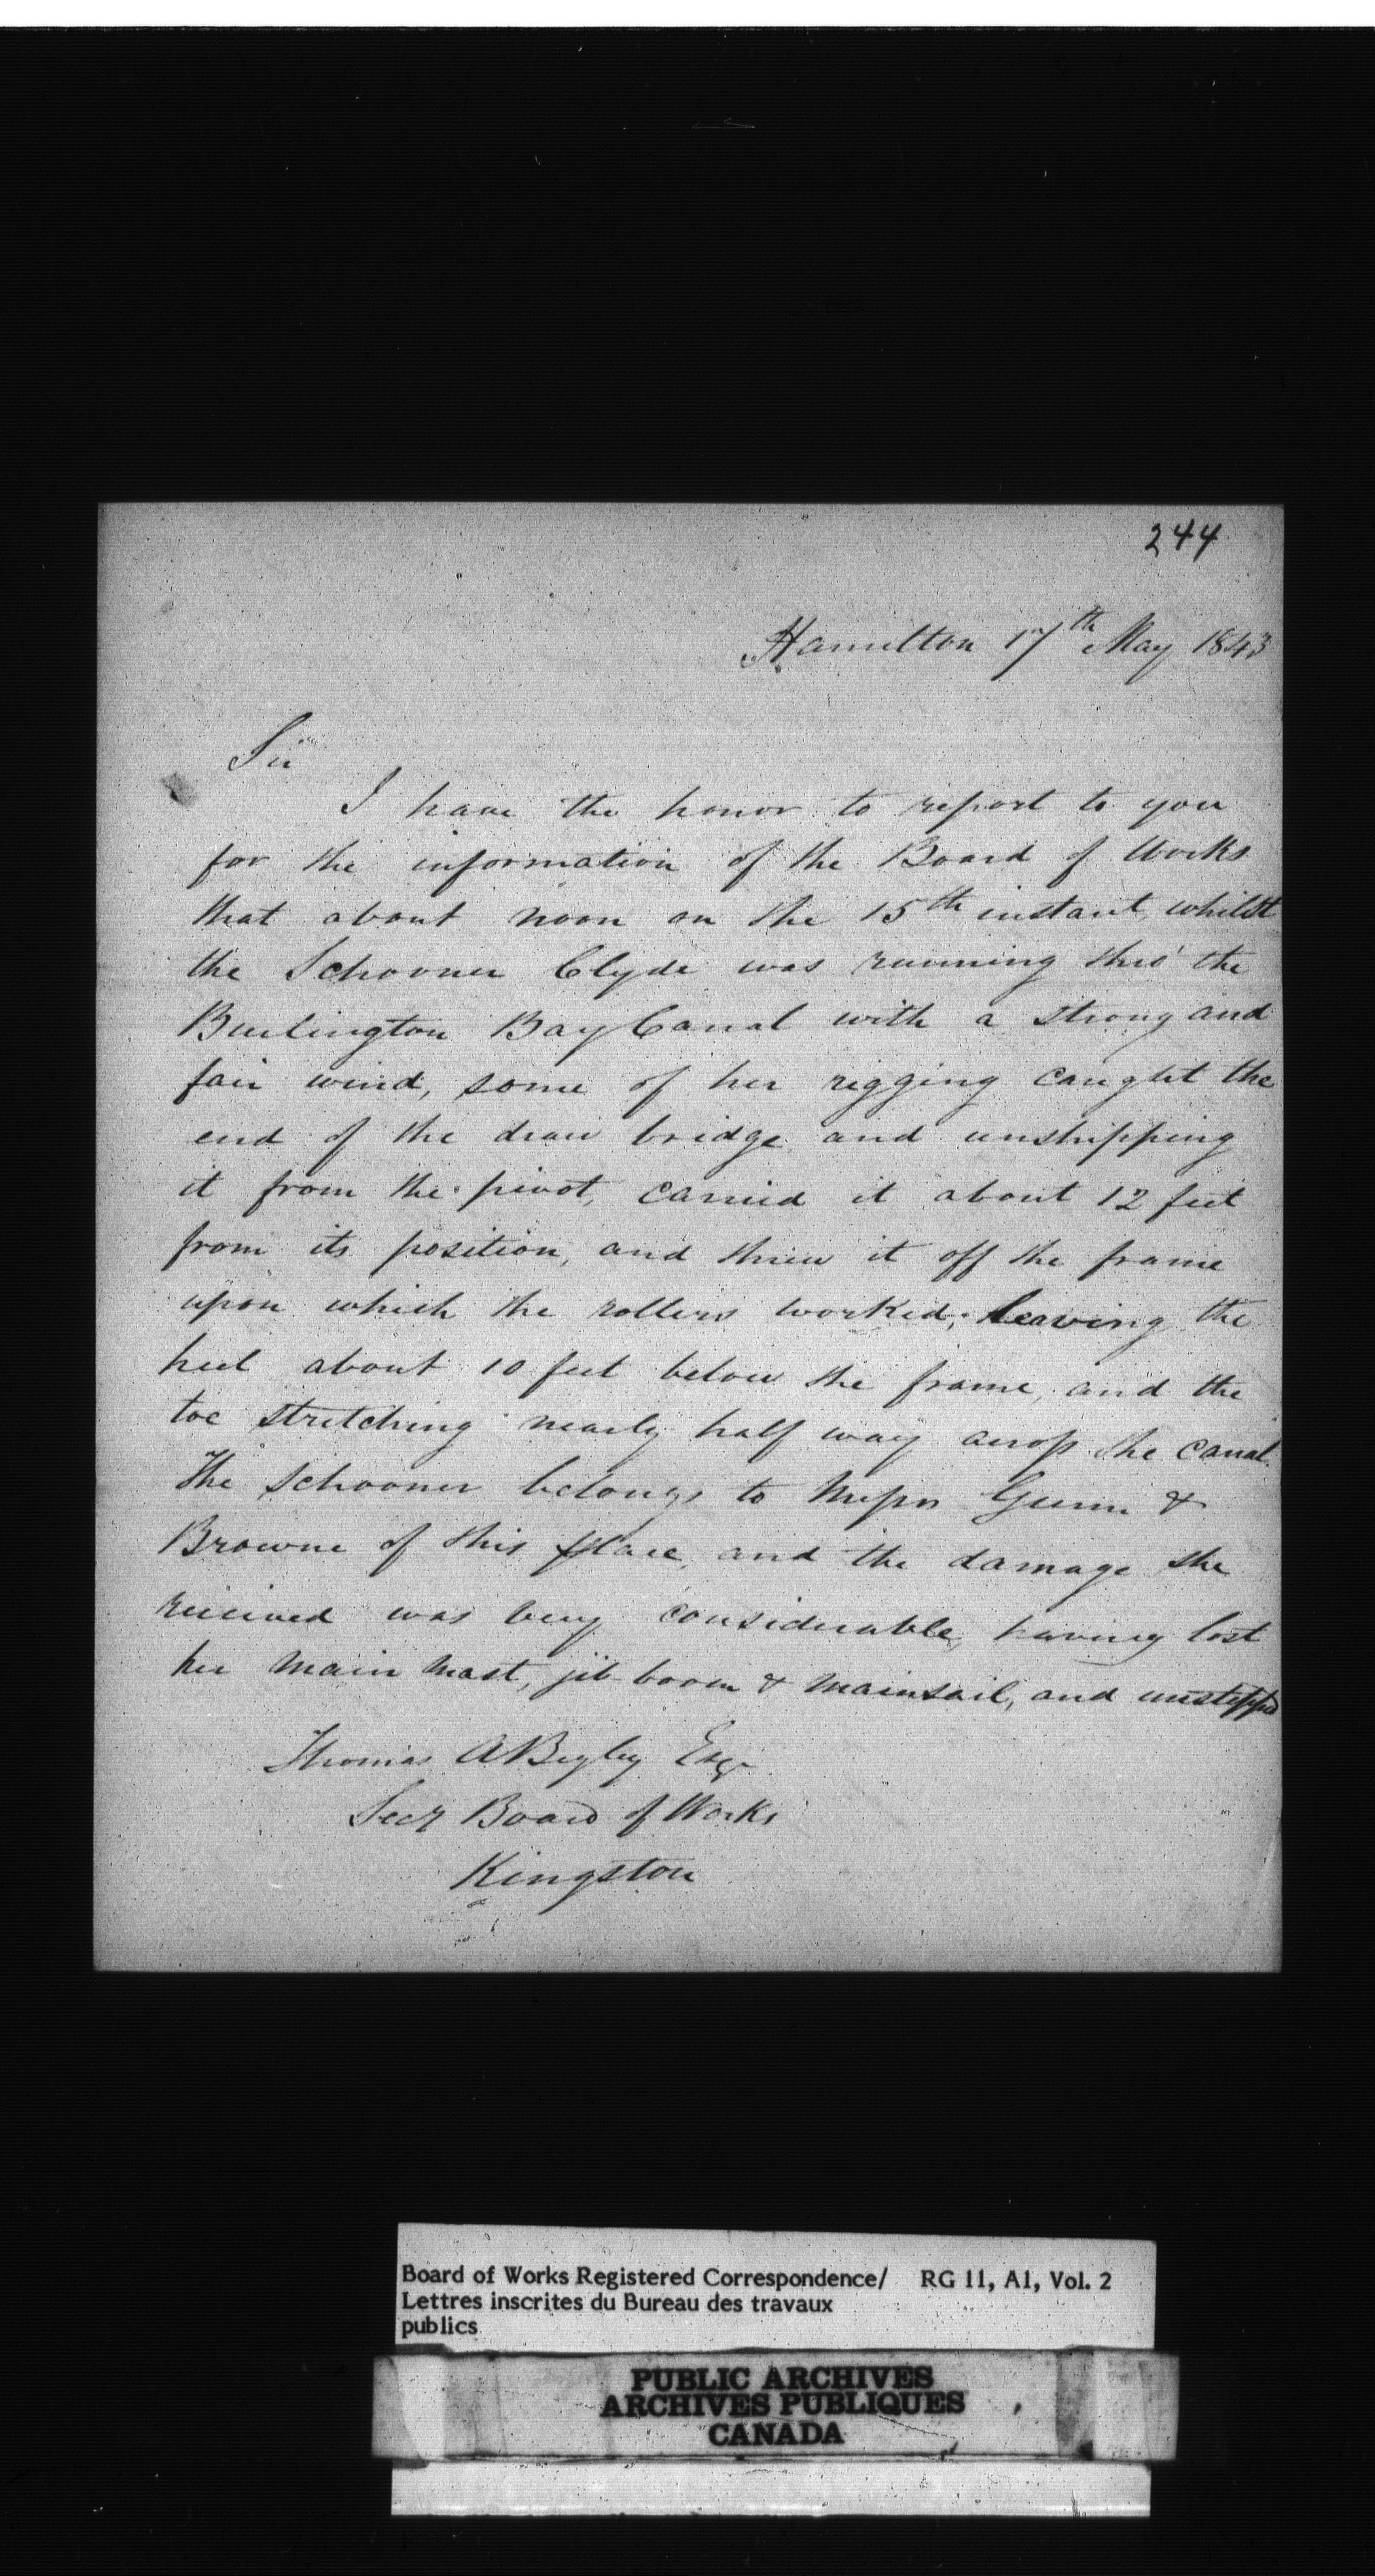 244
Hamilton 17th May 1843
Sir
I have the honor to report to you
for the information of the Board of Works
that about noon on the 15th instant, whilst
the Schooner Clyde was running thro' the
Burlington Bay Canal with a strong and
fair wind, some of her rigging caught the
end of the draw bridge and unshipping
it from the pivot, carried it about 12 feet
from its position, and threw it off the frame
upon which the rollers worked; leaving the
heel about 10 feet below the frame, and the
toe stretching nearly half way across the canal.
The Schooner belongs to Messrs Gunn &
Browne of this place, and the damage she
received was very considerable, having lost
her main mast, jib-boom & mainsail, and unstepped
Thomas A Begley Esqr
Secy Board of Works
Kingston
Board of Works Registered Correspondence/ RG 11, A1, Vol. 2
Lettres inscrites du Bureau des travaux
publics
PUBLIC ARCHIVES
ARCHIVES PUBLIQUES
CANADA